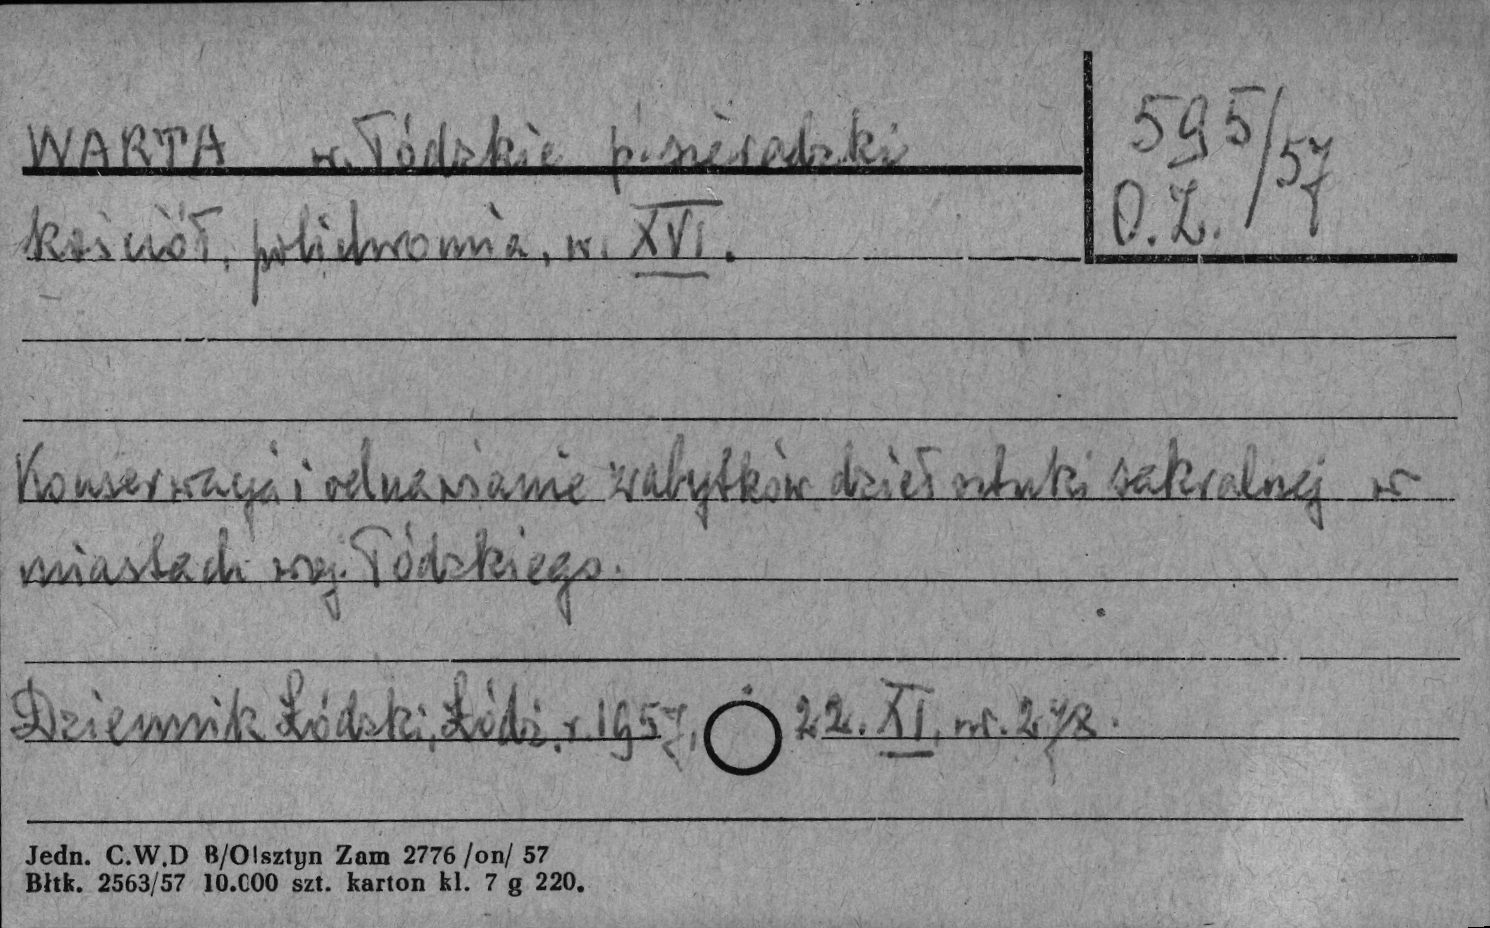 WARTA w. łódzkie p. sieradzki
595/57
O.Z.
kościół, polichromia, w. XVI.
Konserwacja i odnawianie zabytków dzieł sztuki sakralnej w
miastach woj. łódzkiego.
Dziennik Łódzki, Łódź, r. 1957, 22. XI, nr. 278.
Jedn. C.W.D B/Olsztyn Zam 2776 /on/ 57
Błtk. 2563/57 10.000 szt. karton kl. 7 g 220.